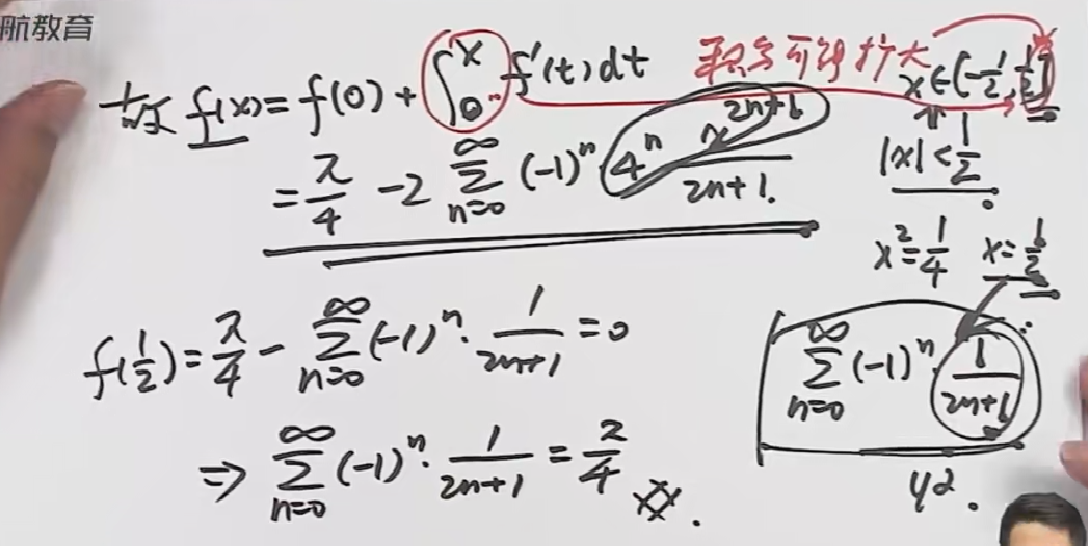 航教育
故 f(x) = f(0) + ∫₀ˣ f'(t)dt 积分可能扩大 x∈(-1/2, 1/2]
= π/4 - 2 ∑_{n=0}^{∞} (-1)ⁿ 4ⁿ x^{2n+1}/(2n+1). |x| < 1/2
x² = 1/4 x = 1/2
f(1/2) = π/4 - ∑_{n=0}^{∞} (-1)ⁿ · 1/(2n+1) = 0
∑_{n=0}^{∞} (-1)ⁿ · 1/(2n+1)
⇒ ∑_{n=0}^{∞} (-1)ⁿ · 1/(2n+1) = π/4 .